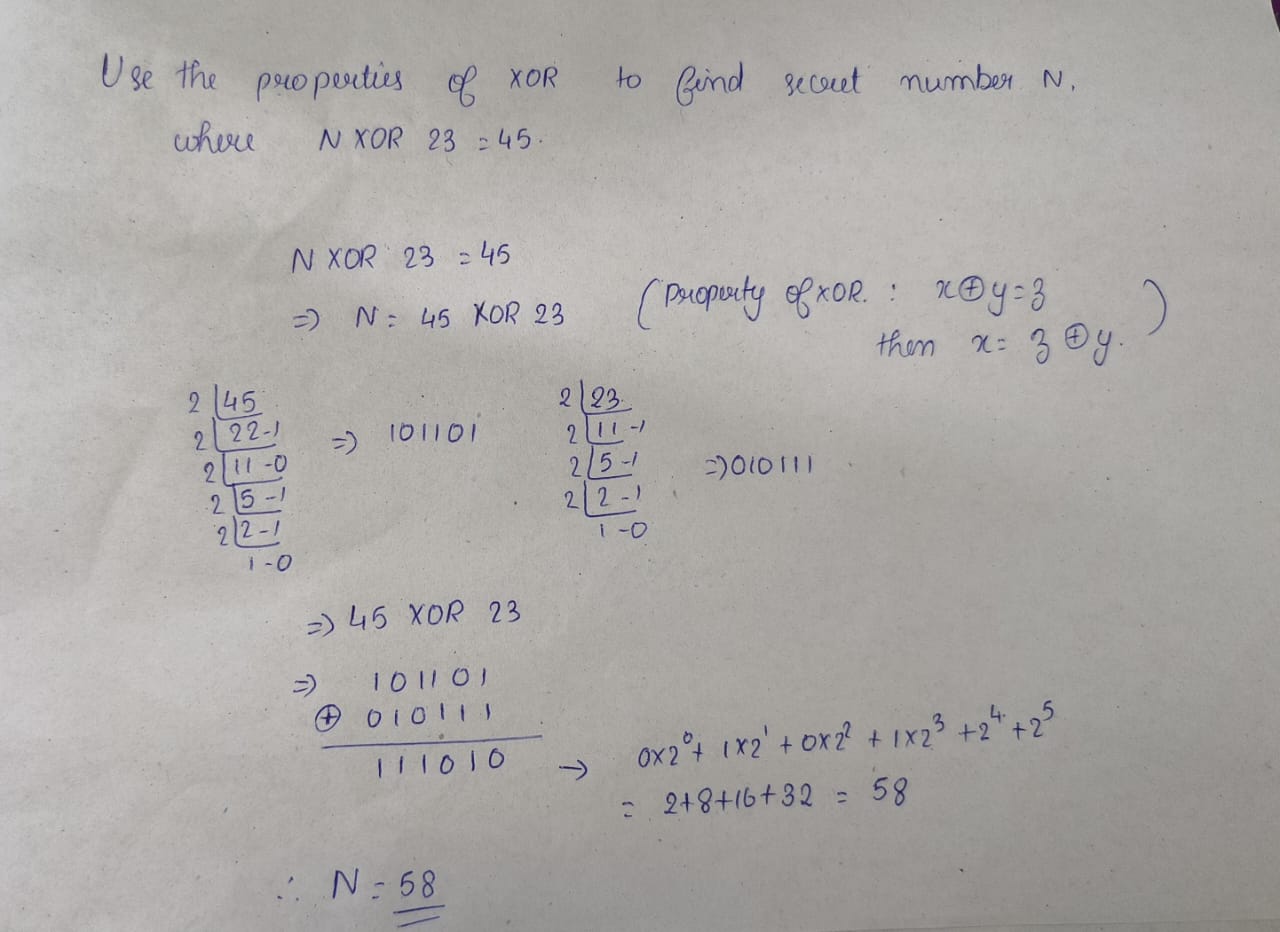 Use the properties of XOR to find secret number N,
where N XOR 23 = 45.
N XOR 23 = 45
⇒ N = 45 XOR 23 (Property of XOR. : x⊕y=z
then x= z⊕y. )
2 45 2 23
2 22-1 ⇒ 101101 2 11-1
2 11-0 2 5-1 ⇒010111
2 5-1 2 2-1
2 2-1 1-0
1-0
⇒ 45 XOR 23
⇒ 101101
⊕ 010111
111010 → 0×2⁰+ 1×2¹ + 0×2² + 1×2³ +2⁴ +2⁵
= 2+8+16+32 = 58
∴ N = 58